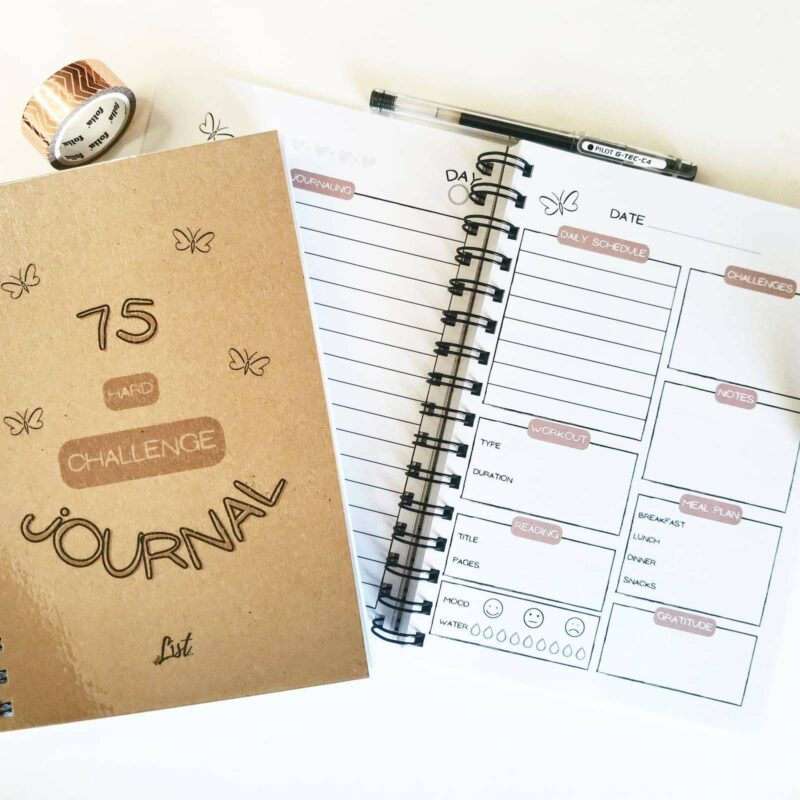 folia
folia
75
HARD
CHALLENGE
JOURNAL
List
JOURNALING
DAY
PILOT G-TEC-C4
DATE
DAILY SCHEDULE
CHALLENGES
NOTES
WORKOUT
TYPE
DURATION
MEAL PLAN
BREAKFAST
LUNCH
DINNER
SNACKS
READING
TITLE
PAGES
MOOD
WATER
GRATITUDE